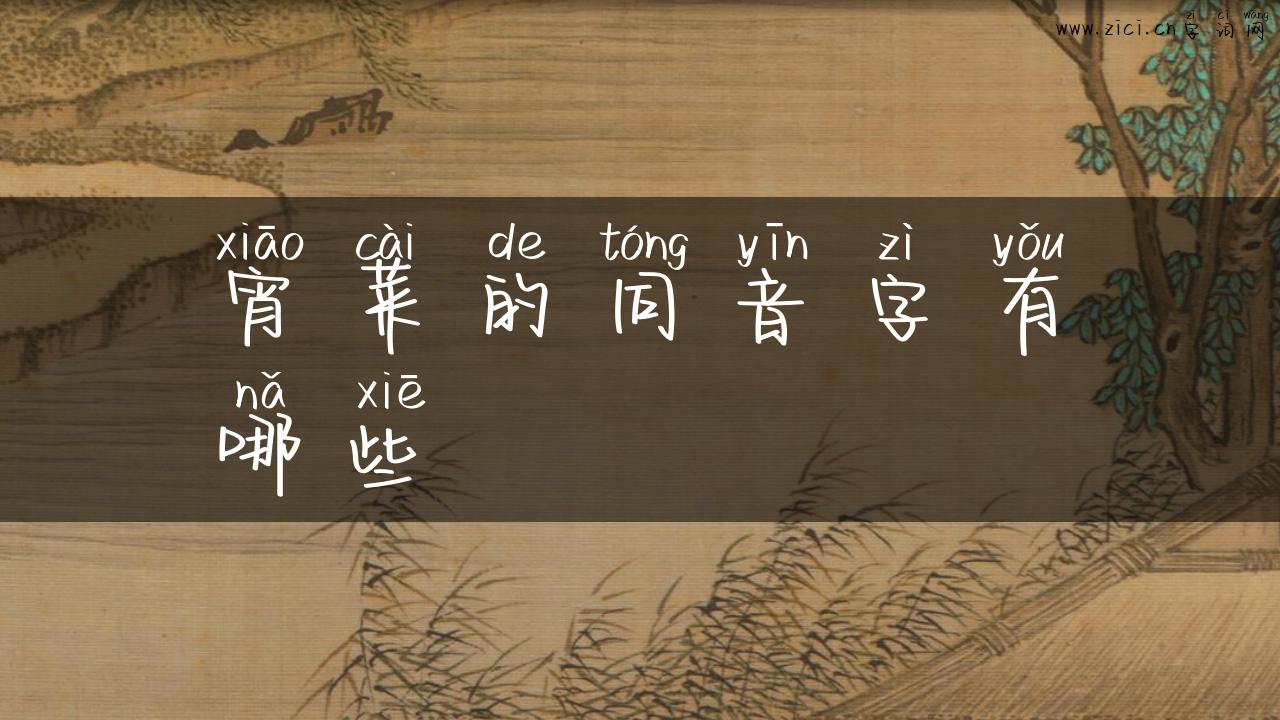 zì cí wǎng
www.zici.cn 字 词 网
xiāo cài de tóng yīn zì yǒu
宵 菜 的 同 音 字 有
nǎ xiē
哪 些